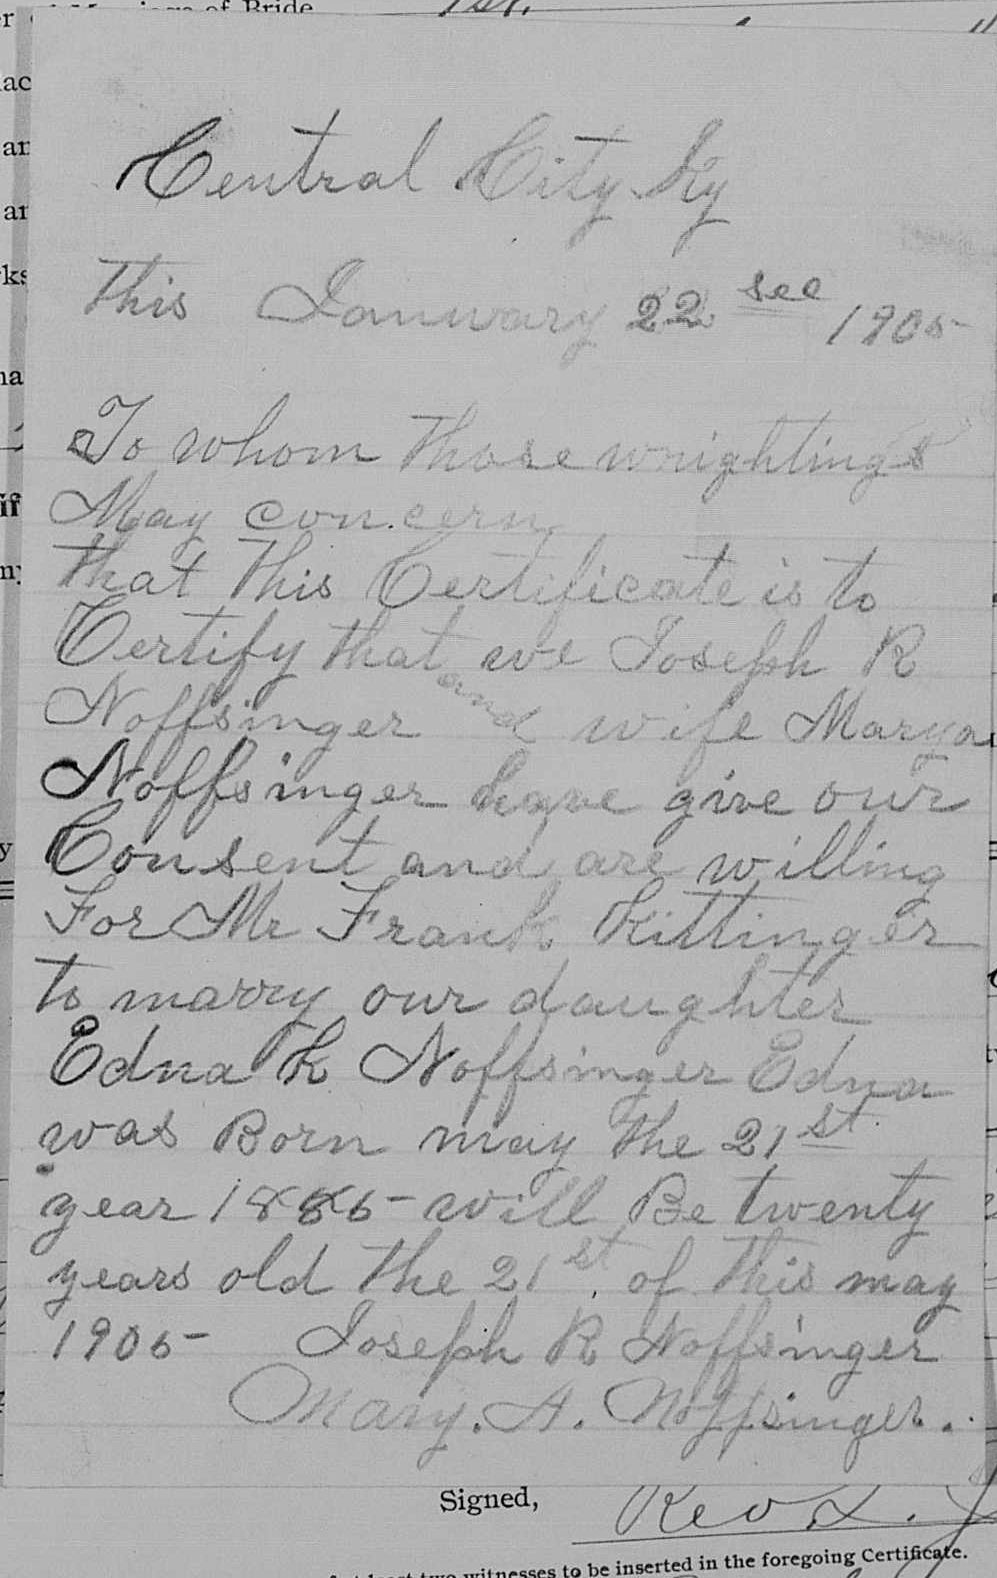 of Bride 1st. "
Central City Ky
This January 22 sec 1905
To whom those wrightings
May concern
that this Certificate is to
Certify that we Joseph R
Noffsinger and wife Marya
Noffsinger have give our
Consent and are willing
For Mr Frank Kittinger
to marry our daughter
Edna K Noffsinger Edna
was Born may the 21st
year 1885 will Be twenty
years old the 21st of this may
1905 Joseph R Noffsinger
Mary. A. Noffsinger.
Signed, Rev L.
two witnesses to be inserted in the foregoing Certificate.